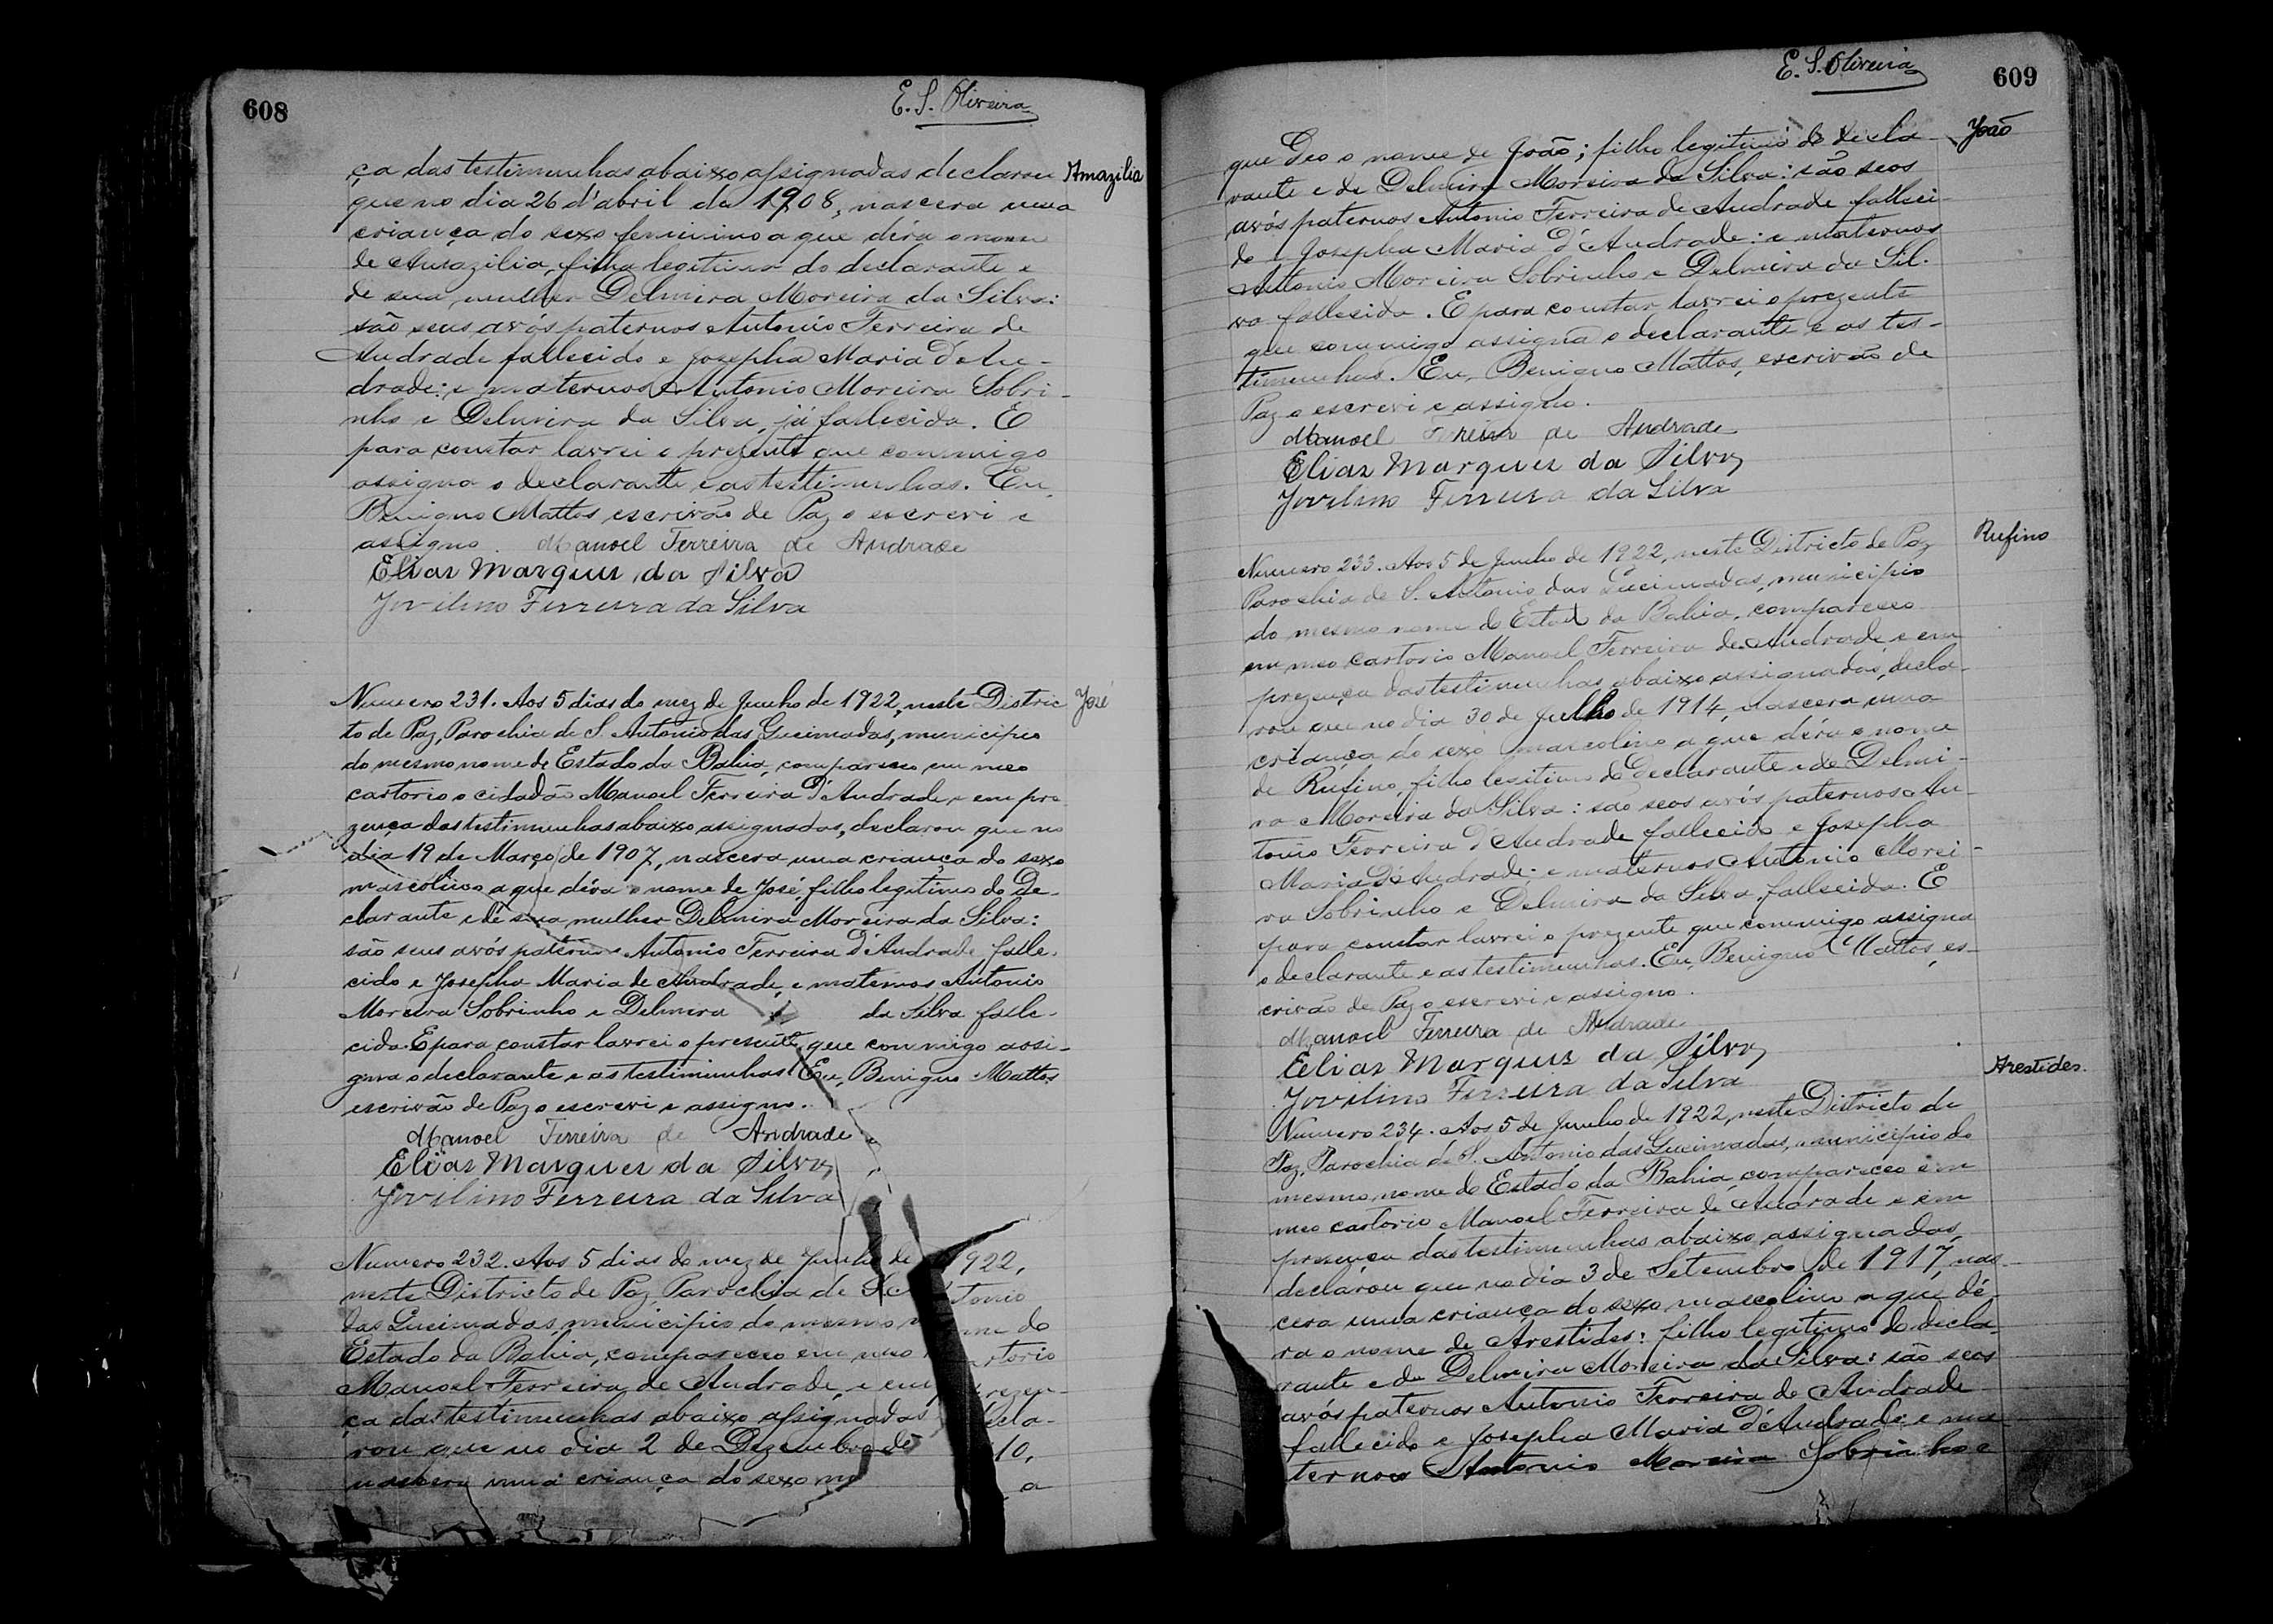 608
E. S. Oliveira
ça das testimunhas abaixo assignadas declarou Amazilia
que no dia 26 d'abril de 1908, nascera uma
criança do sexo feminino a que déra o nome
de Amazilia, filha legitima do declarante e
de sua mulher Delmira Moreira da Silva:
são seus avós paternos Antonio Ferreira de
Andrade fallecido e Josepha Maria d'An-
drade: e maternos Antonio Moreira Sobri-
nho e Delmira da Silva, já fallecida. E
para constar lavrei o prezente que commigo
assigna o declarante e as testimunhas. Eu,
Benigno Mattos escrivão de Paz o escrevi e
assigno. Manoel Ferreira de Andrade
Elias Marques da Silva
Jovilino Ferreira da Silva
Numero 231. Aos 5 dias do mez de Junho de 1922, neste Distric José
to de Paz, Parochia de S. Antonio das Queimadas, municipio
do mesmo nome do Estado da Bahia, compareceo em meo
cartorio o cidadão Manoel Ferreira d'Andrade e em pre
zença das testimunhas abaixo assignadas, declarou que no
dia 19 de Março de 1907, nascera uma criança do sexo
mascolino a que déra o nome de José, filho legitimo do De-
clarante e de sua mulher Delmira Moreira da Silva:
são seus avós paternos Antonio Ferreira d'Andrade, falle-
cido e Josepha Maria de Andrade, e maternos Antonio
Moreira Sobrinho e Delmira da Silva falle-
cida. E para constar lavrei o presente que commigo assi-
gna o declarante e as testimunhas. Eu, Benigno Mattos
escrivão de Paz o escrevi e assigno.
Manoel Ferreira de Andrade
Elias Marques da Silva
Jovilino Ferreira da Silva
Numero 232. Aos 5 dias do mez de Junho de 1922,
neste Districto de Paz, Parochia de S. tonio
das Queimadas, municipio do mesmo n me do
Estado da Bahia, compareceo em meo rtorio
Manoel Ferreira de Andrade, e em rezen-
ça das testimunhas abaixo assignadas ecla-
rou que no dia 2 de Dezembro de 10,
nascera uma criança do sexo ma a
609
E. S. Oliveira
que deo o nome de João; filho legitimo do decla- João
rante e de Delmira Moreira da Silva: são seos
avós paternos Antonio Ferreira de Andrade falleci-
do e Josepha Maria d'Andrade: e maternos
Antonio Moreira Sobrinho e Delmira da Sil-
va fallecida. E para constar lavrei o prezente
que commigo assigna o declarante e as tes-
timunhas. Eu, Benigno Mattos, escrivão de
Paz o escrevi e assigno.
Manoel Ferreira de Andrade
Elias Marques da Silva
Jovilino Ferreira da Silva
Rufino
Numero 233. Aos 5 de Junho de 1922, neste Districto de Paz
Parochia de S. Antonio das Queimadas, municipio
do mesmo nome do Estado da Bahia, compareceo
em meo cartorio Manoel Ferreira de Andrade, e em
prezença das testimunhas abaixo assignadas, decla-
rou que no dia 30 de Julho de 1914, nascera uma
criança do sexo mascolino a que déra o nome
de Rufino, filho legitimo do declarante e de Delmi-
ra Moreira da Silva: são seos avós paternos An-
tonio Ferreira d'Andrade fallecido e Josepha
Maria d'Andrade: e maternos Antonio Morei-
ra Sobrinho e Delmira da Silva, fallecida. E
para constar lavrei o prezente que commigo assigna
o declarante e as testimunhas. Eu, Benigno Mattos, es-
crivão de Paz o escrevi e assigno.
Manoel Ferreira de Andrade
Elias Marques da Silva
Jovilino Ferreira da Silva
Arestides.
Numero 234. Aos 5 de Junho de 1922, neste Districto de
Paz, Parochia de S. Antonio das Queimadas, municipio do
mesmo nome do Estado da Bahia, compareceo em
meo cartorio Manoel Ferreira de Andrade e em
presença das testimunhas abaixo assignadas,
declarou que no dia 3 de Setembro de 1917, nas-
cera uma criança do sexo mascolino a que dé-
ra o nome de Arestides: filho legitimo do decla-
rante e de Delmira Moreira da Silva: são seos
avós paternos Antonio Ferreira de Andrade
fallecido e Josepha Maria d'Andrade e ma-
ternos Antonio Moreira Sobrinho e